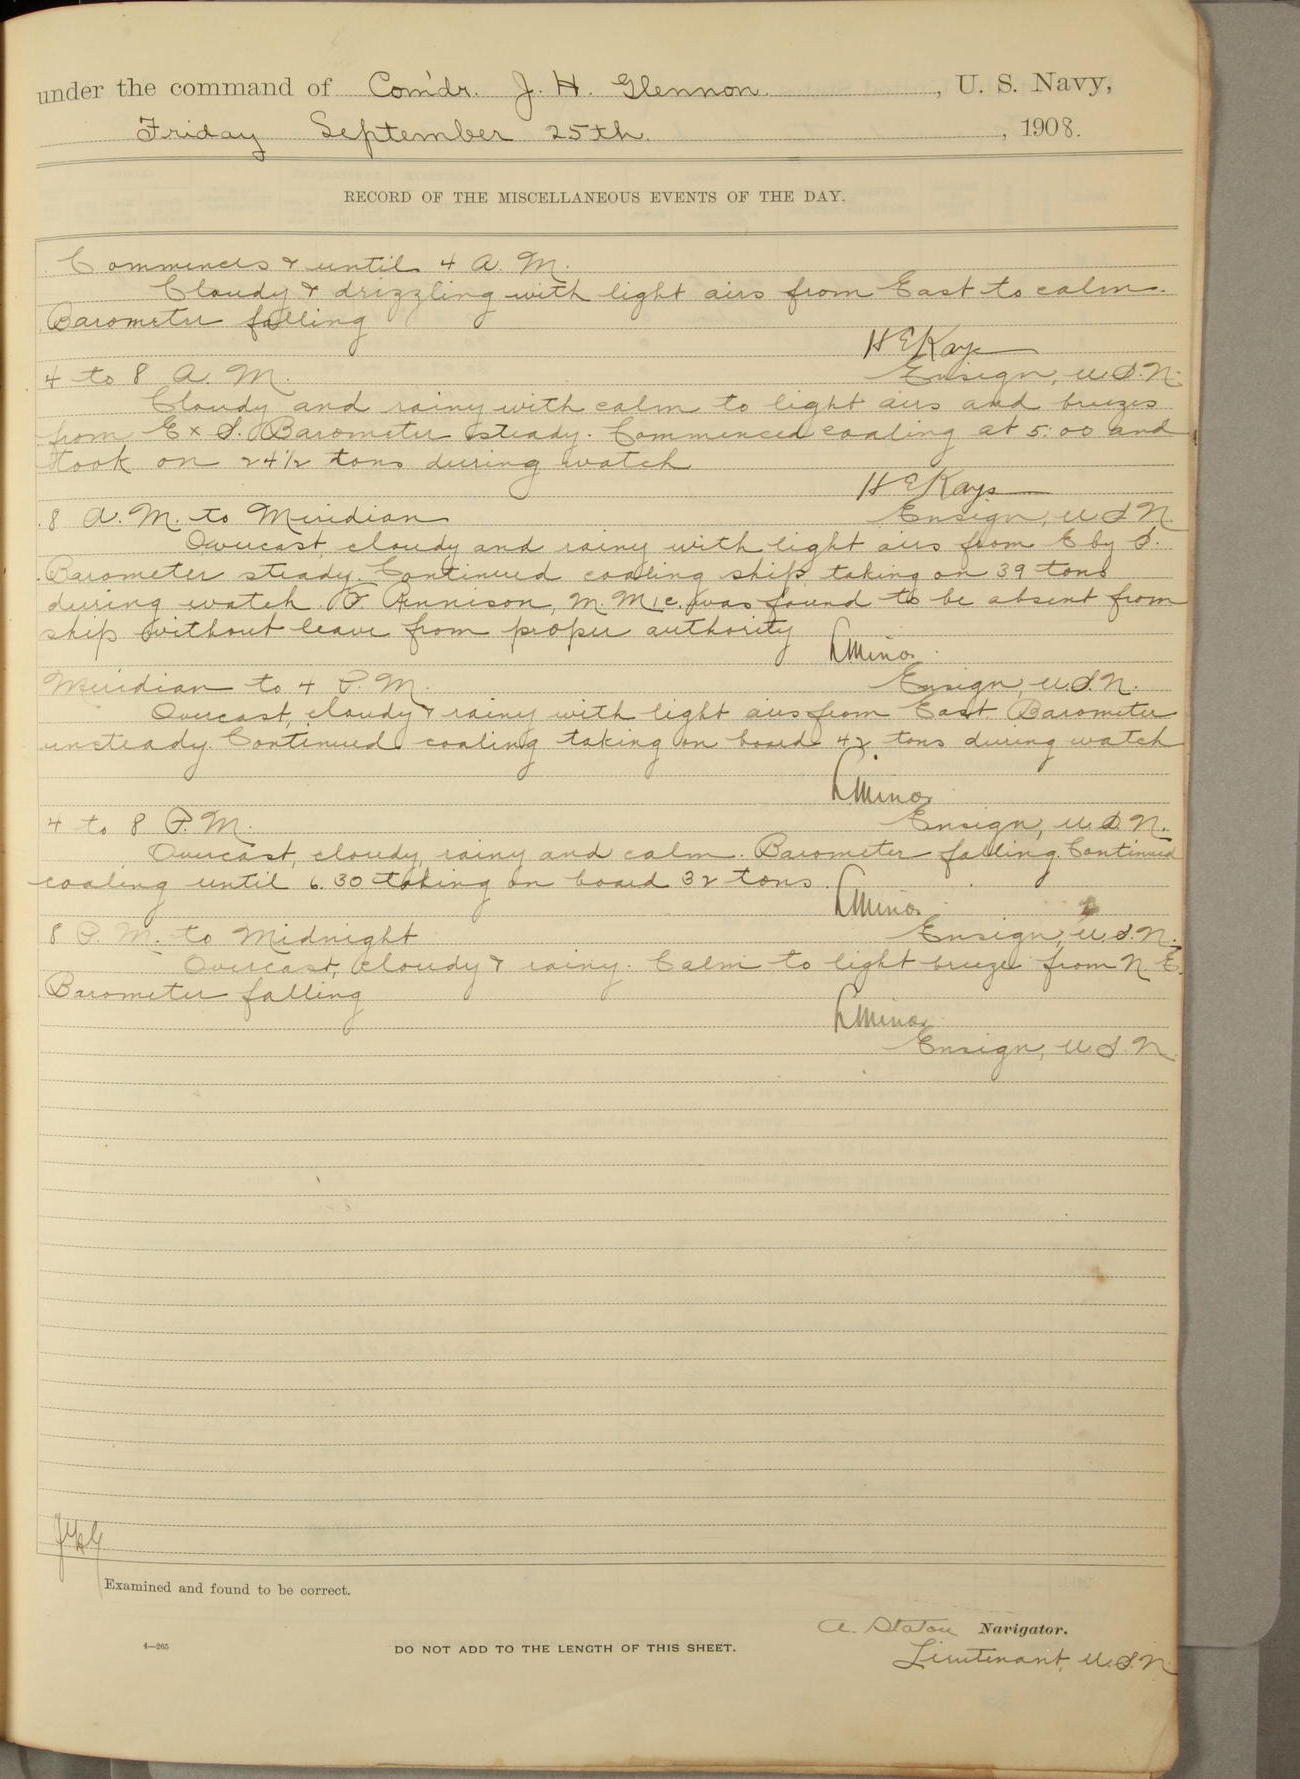 under the command of Com'dr. J. H. Glennon, U. S. Navy,
Friday September 25th, 1908.
RECORD OF THE MISCELLANEOUS EVENTS OF THE DAY.
Commences & until 4 A. M.
Cloudy & drizzling with light airs from East to calm.
Barometer falling
H E Kays
4 to 8 A. M.
Ensign, U.S.N.
Cloudy and rainy with calm to light airs and breezes
from E x S. Barometer steady. Commenced coaling at 5:00 and
took on 24 1/2 tons during watch
H E Kays
8 A. M. to Meridian
Ensign, U S N.
Overcast, cloudy and rainy with light airs from E by S.
Barometer steady. Continued coaling ship taking on 39 tons
during watch. F. Pennison, M. M. 1 c. was found to be absent from
ship without leave from proper authority
L Minor
Meridian to 4 P. M.
Ensign, U.S.N.
Overcast, cloudy & rainy with light airs from East. Barometer
unsteady. Continued coaling taking on board 42 tons during watch
L Minor
4 to 8 P. M.
Ensign, U.S.N.
Overcast, cloudy, rainy and calm. Barometer falling. Continued
coaling until 6.30 taking on board 32 tons.
L Minor
8 P. M. to Midnight
Ensign, U.S.N.
Overcast, cloudy & rainy. Calm to light breeze from N E.
Barometer falling
L Minor
Ensign, U. S. N.
JHG
Examined and found to be correct.
A. Staton Navigator.
4—265
DO NOT ADD TO THE LENGTH OF THIS SHEET.
Lieutenant, U.S.N.